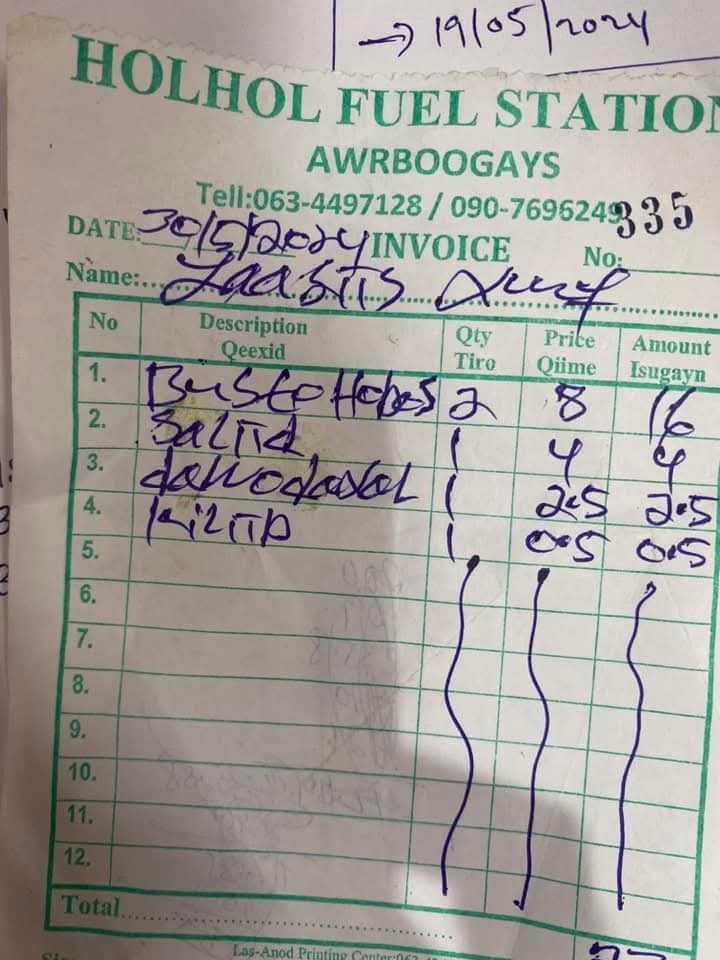 → 19/05/2024
HOLHOL FUEL STATION
AWRBOOGAYS
Tell:063-4497128 / 090-7696249
335
DATE: 30/5/2024 INVOICE No:
Name:
No Description Qeexid Qty Tiro Price Qiime Amount Isugayn
1. 2 8 16
2. 1 4 4
3. 1 2.5 2.5
4. 1 0.5 0.5
5.
6.
7.
8.
9.
10.
11.
12.
Total
Las-Anod Printing Center:063